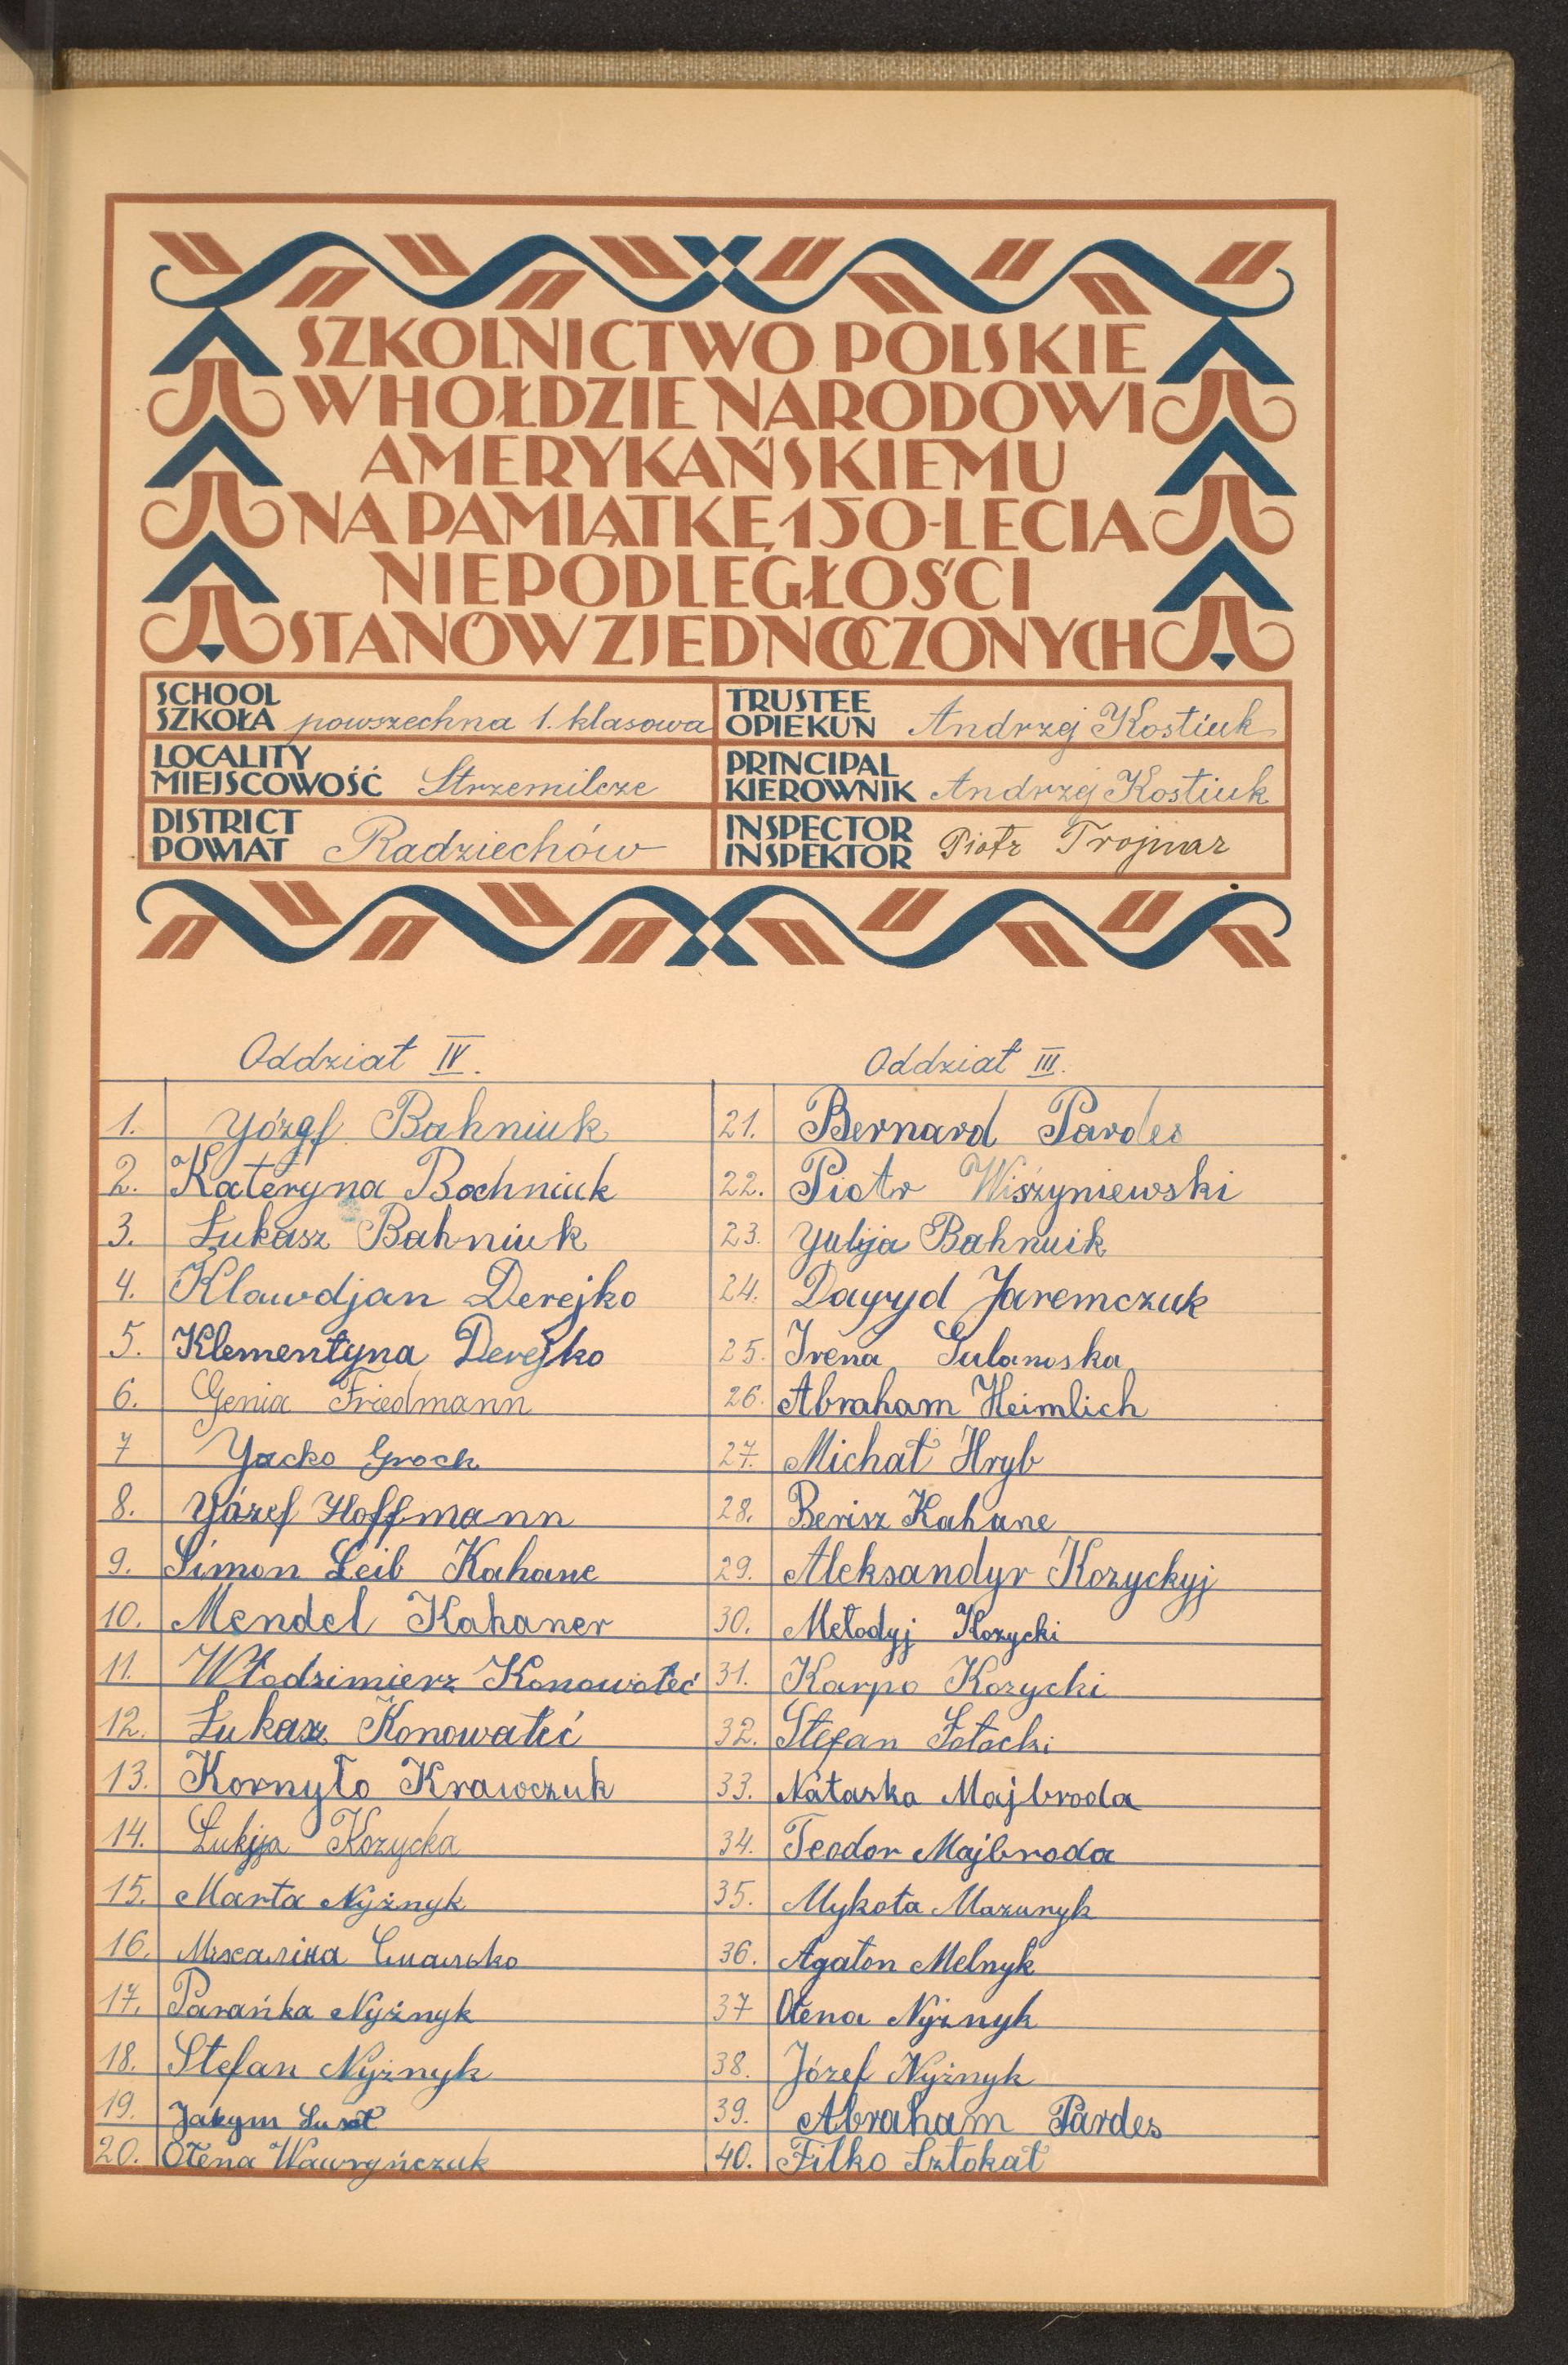 SZKOLNICTWO POLSKIE
W HOŁDZIE NARODOWI
AMERYKAŃSKIEMU
NA PAMIĄTKĘ 150-LECIA
NIEPODLEGŁOŚCI
STANÓW ZJEDNOCZONYCH
SCHOOL
SZKOŁA powszechna 1. klasowa
TRUSTEE
OPIEKUN Andrzej Kostiuk
LOCALITY
MIEJSCOWOŚĆ Strzemilcze
PRINCIPAL
KIEROWNIK Andrzej Kostiuk
DISTRICT
POWIAT Radziechów
INSPECTOR
INSPEKTOR Piotr Trojnar
Oddział IV.
1. Yózef Bahniuk
2. Kateryna Bochniuk
3. Łukasz Bahniuk
4. Klawdjan Derejko
5. Klementyna Derejko
6. Genia Friedmann
7 Yacko Groch
8. Yózef Hoffmann
9. Simon Leib Kahane
10. Mendel Kahaner
11. Włodzimierz Konowałeć
12. Łukasz Konowałeć
13. Kornyło Krawczuk
14. Łukija Kozycka
15. Marta Nyżnyk
16.
17. Parańka Nyżnyk
18. Stefan Nyżnyk
19. Jakym
20. Ołena Wawryńczuk
Oddział III.
21. Bernard Pardes
22. Piotr Wiszyniewski
23. Yulija Bahnuik
24. Dawyd Jaremczuk
25. Irena
26. Abraham Heimlich
27. Michał Hryb
28. Berisz Kahane
29. Aleksandyr Kozyckyj
30. Metodyj Kozycki
31. Karpo Kozycki
32. Stefan Łotocki
33. Nataska Majbroda
34. Teodor Majbroda
35. Mykoła Mazuryk
36. Agaton Melnyk
37 Ołena Nyżnyk
38. Józef Nyżnyk
39. Abraham Pardes
40. Filko Sztokał